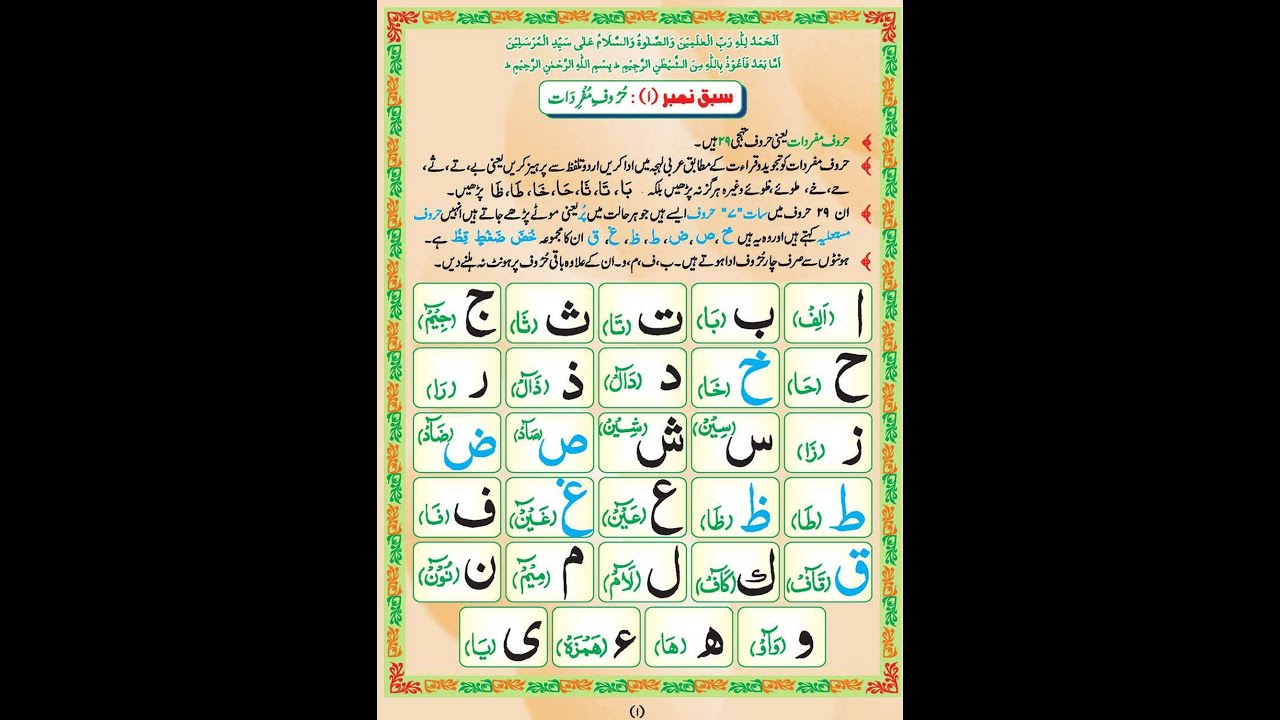 اَلْحَمْدُ لِلّٰهِ رَبِّ الْعٰلَمِیْنَ وَالصَّلٰوةُ وَالسَّلَامُ عَلٰی سَیِّدِ الْمُرْسَلِیْنَ
اَمَّا بَعْدُ فَاَعُوْذُ بِاللّٰهِ مِنَ الشَّیْطٰنِ الرَّجِیْمِ ط بِسْمِ اللّٰهِ الرَّحْمٰنِ الرَّحِیْمِ ط
سبق نمبر (۱) : حُرُوفِ مُفْرِدَات
حروف مفردات یعنی حروف تہجی ۲۹ ہیں۔
حروف مفردات کو تجوید و قراءت کے مطابق عربی لہجہ میں ادا کریں اردو تلفظ سے پرہیز کریں یعنی بے، تے، ثے،
حے، خے، طوئے، ظوئے وغیرہ ہرگز نہ پڑھیں بلکہ بَا، تَا، ثَا، حَا، خَا، طَا، ظَا پڑھیں۔
ان ۲۹ حروف میں سات "۷" حروف ایسے ہیں جو ہر حالت میں پُر یعنی موٹے پڑھے جاتے ہیں انہیں حروف
مستعلیہ کہتے ہیں اور وہ یہ ہیں خ، ص، ض، ط، ظ، غ، ق ان کا مجموعہ خُصَّ ضَغْطٍ قِظْ ہے۔
ہونٹوں سے صرف چار حُرُوف ادا ہوتے ہیں۔ ب، ف، م، و۔ ان کے علاوہ باقی حُرُوف پر ہونٹ نہ ہلنے دیں۔
ا (اَلِفْ) ب (بَا) ت (تَا) ث (ثَا) ج (جِیْمْ)
ح (حَا) خ (خَا) د (دَالْ) ذ (ذَالْ) ر (رَا)
ز (زَا) س (سِیْنْ) ش (شِیْنْ) ص (صَادْ) ض (ضَادْ)
ط (طَا) ظ (ظَا) ع (عَیْنْ) غ (غَیْنْ) ف (فَا)
ق (قَافْ) ك (كَافْ) ل (لَامْ) م (مِیْمْ) ن (نُوْنْ)
و (وَاوْ) ھ (ھَا) ء (ھَمْزَہ) ی (یَا)
(۱)